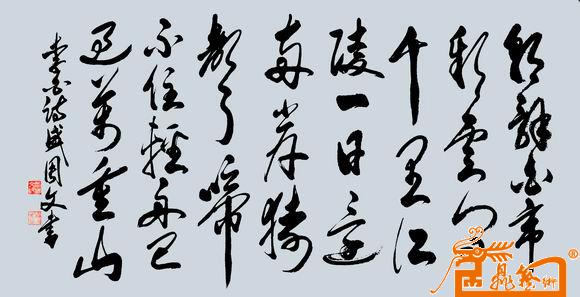 朝辭白帝
彩雲間
千里江
陵一日還
兩岸猿
聲啼
不住輕舟已
過萬重山
李白詩盛國文書